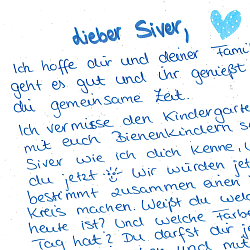 lieber Siver,
Ich hoffe dir und deiner Fami
geht es gut und ihr genießt
die gemeinsame Zeit.
Ich vermisse den Kindergarte
mit euch Bienenkindern s
Siver wie ich dich kenne, w
du jetzt Wir würden jet
bestimmt zusammen einen
Kreis machen. Weißt du wel
heute ist? Und welche Farb
Tag hat? Du darfst dir